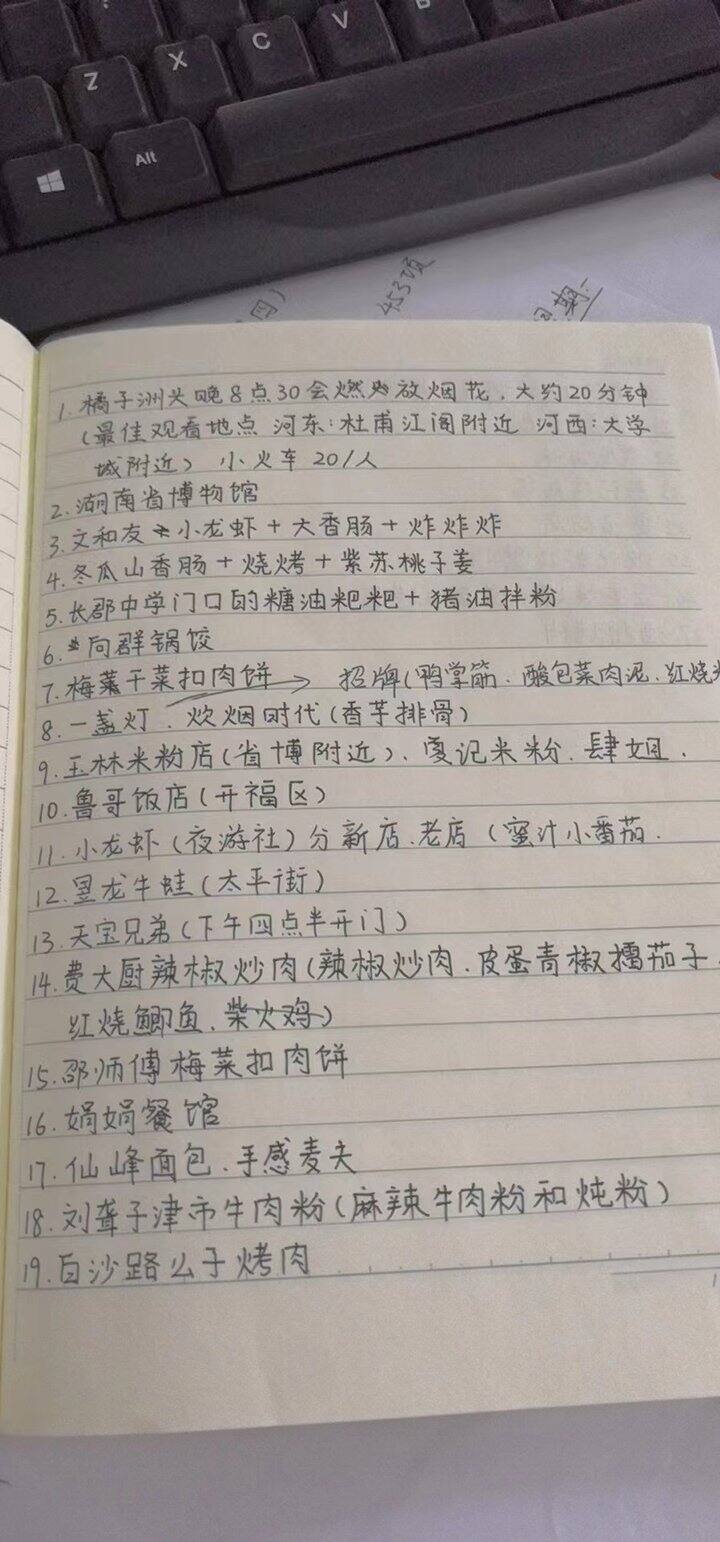 Z X C V B
Alt
453项
1. 橘子洲头晚8点30会燃放烟花，大约20分钟
(最佳观看地点 河东:杜甫江阁附近 河西:大学
城附近) 小火车 20/人
2. 湖南省博物馆
3. 文和友 小龙虾+大香肠+炸炸炸
4. 冬瓜山香肠+烧烤+紫苏桃子姜
5. 长郡中学门口的糖油粑粑+猪油拌粉
6. 向群锅饺
7. 梅菜干菜扣肉饼 → 招牌(鸭掌筋、酸包菜肉泥、红烧
8. 一盏灯、炊烟时代(香芋排骨)
9. 玉林米粉店(省博附近)、夏记米粉、肆姐、
10. 鲁哥饭店(开福区)
11. 小龙虾(夜游社)分新店、老店(蜜汁小番茄、
12. 昱龙牛蛙(太平街)
13. 天宝兄弟(下午四点半开门)
14. 费大厨辣椒炒肉(辣椒炒肉、皮蛋青椒擂茄子、
红烧鲫鱼、柴火鸡)
15. 邵师傅梅菜扣肉饼
16. 娟娟餐馆
17. 仙峰面包、手感麦夫
18. 刘聋子津市牛肉粉(麻辣牛肉粉和炖粉)
19. 白沙路公子烤肉